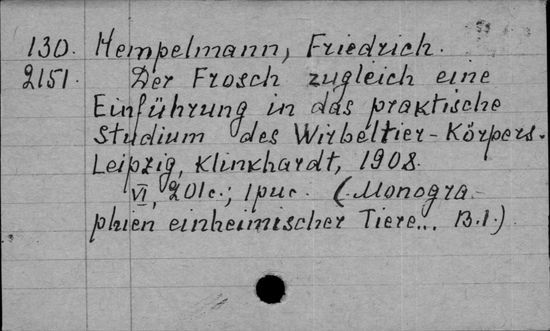 130. Hempelmann, Friedrich.
2151. Der Frosch zugleich eine
Einführung in das praktische
Studium des Wirbeltier-Körpers.
Leipzig, Klinkhardt, 1908.
VI, 201c.; 1 рис. (Monogra-
phien einheimischer Tiere... B.1.)